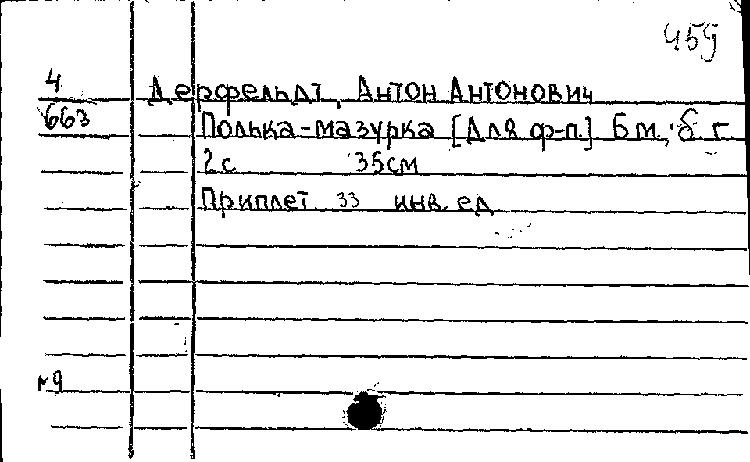 459
4 Дерфельдт, Антон Антонович
663 Полька-мазурка [Для ф-п.] Б м., б г.
2 с 35см
Приплет 33 инв. ед